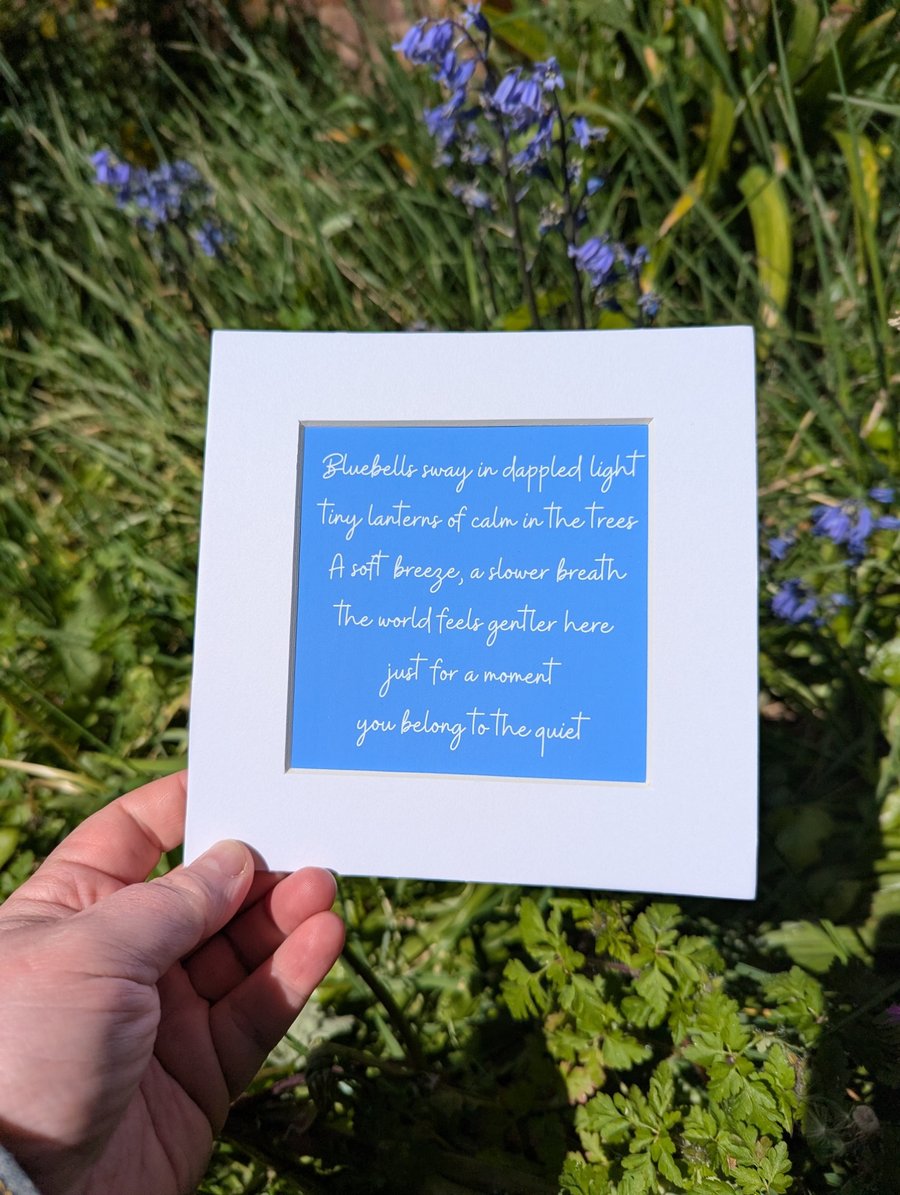 Bluebells sway in dappled light
tiny lanterns of calm in the trees
A soft breeze, a slower breath
the world feels gentler here
just for a moment
you belong to the quiet